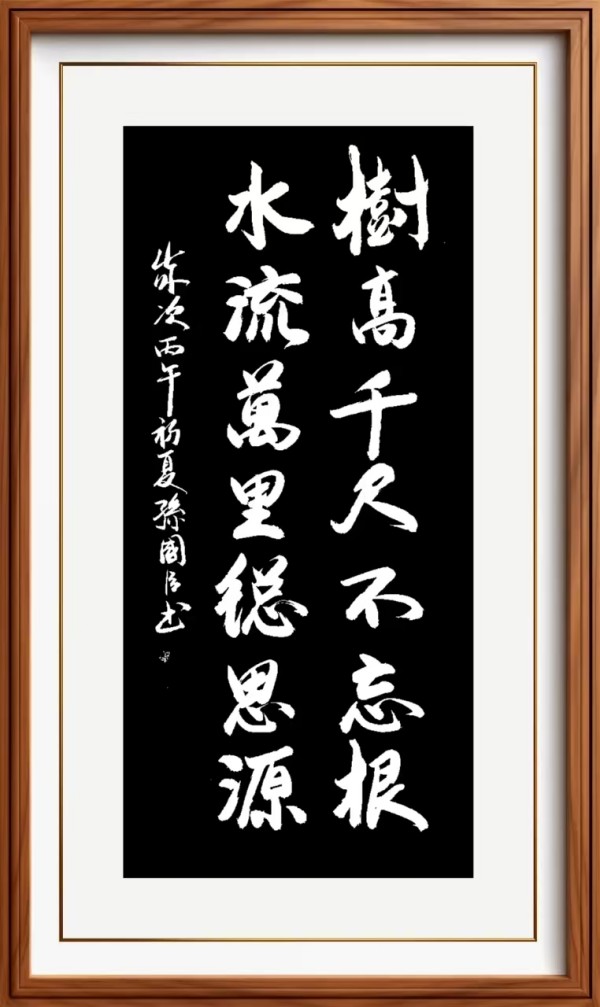 樹高千尺不忘根
水流萬里總思源
歲次丙午初夏孫國臣书